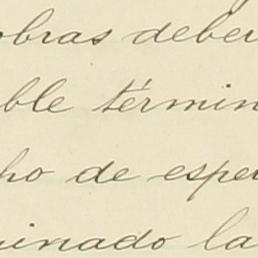 obras deber
ble términ
ho de espe
inado la